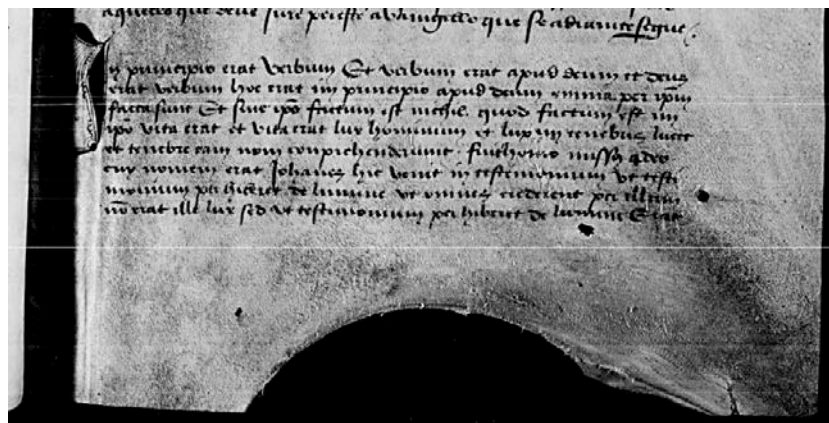 aquello que deue jure prieste a Vangello que se adiamte segue.
n principio erat verbum Et verbum erat apud deum et deus
erat verbum hoc erat im principio apud deum omnia per ipm
facta sunt Et sine ipo factum est nichil. quod factum est im
ipo vita erat et vita erat lux hominum et lux im tenebris lucet
et tenebre eam nom comprehenderunt. fuit homo missus a deo
cuy nomem erat Johanes hic venit in testemonium vt testi
monium per hiberet de lumine vt omnes crederent per illum
no erat ille lux sed vt testimonium per hiberet de lumine Erat